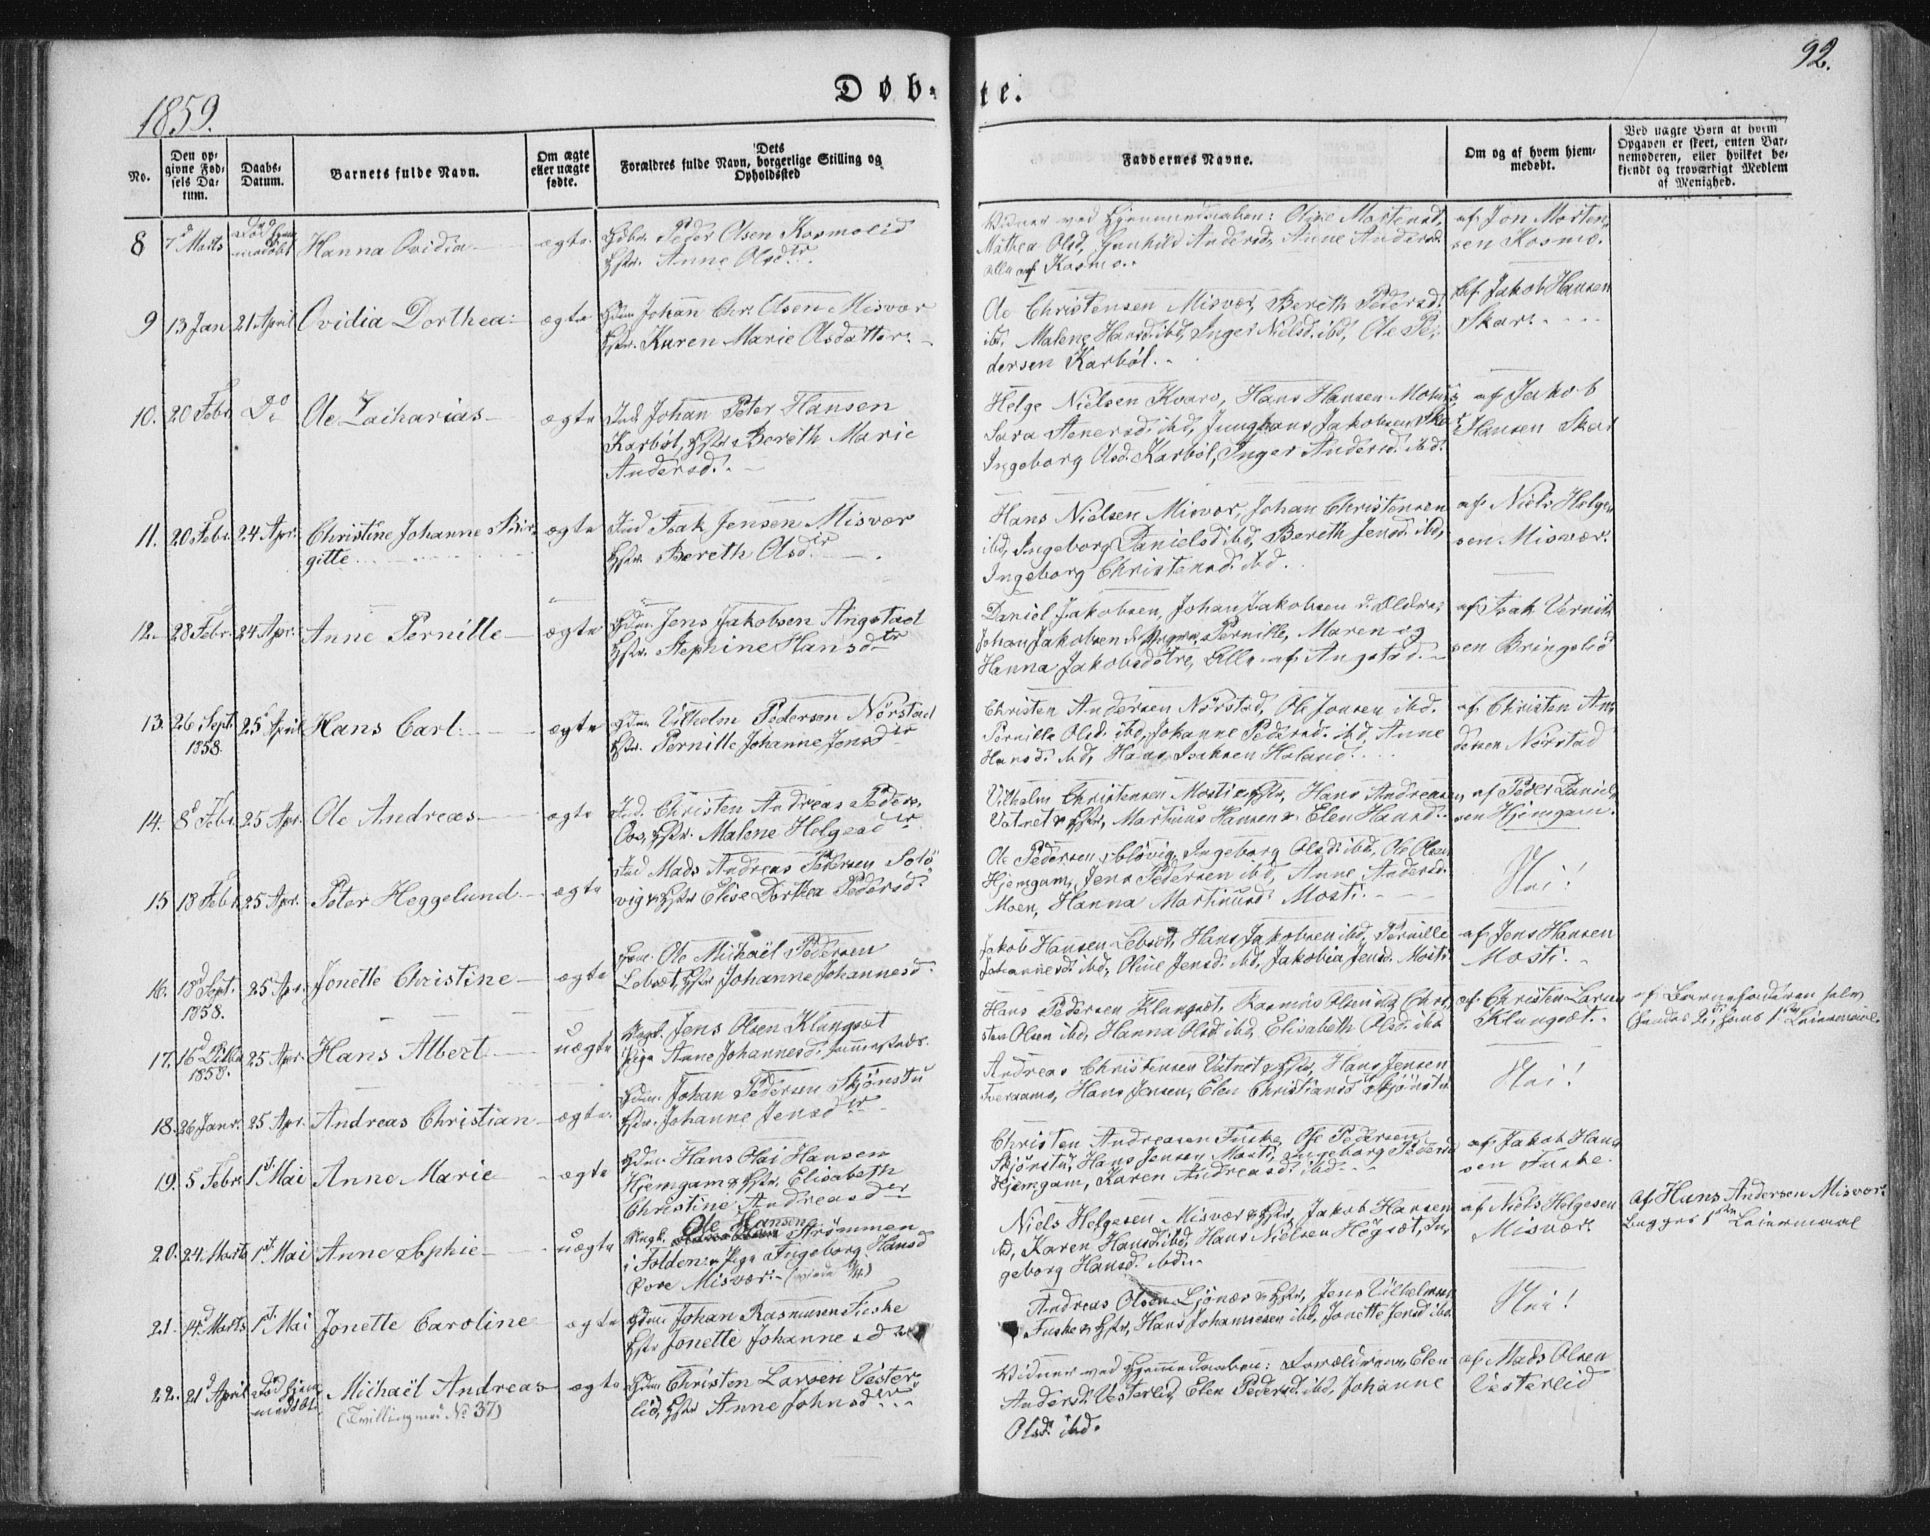 92.
1859.
Døb-te.
No.
Den op-
givne Fød-
sels Da-
tum.
Daabs-
Datum.
Barnets fulde Navn.
Om ægte
eller uægte
fødte.
Dets
Forældres fulde Navn, borgerlige Stilling og
Opholdssted
Faddernes Navne.
Om og af hvem hjem-
medøbt.
Ved uægte Børn at hvem
Opgaven er skeet, enten Bar-
nemoderen, eller hvilket be-
kjendt og troværdigt Medlem
af Menighed.
8 7d Marts Død hjem-
medøbt Hanna Ovidia ægte
Gdbr. Peder Olsen Kosmolid
Hstr. Anne Olsdtr.
Vidner ved Hjemmedaaben: Oline Mortensd,
Mathea Olsd, Gunhild Andersd, Anne Andersd.
alle af Kosmo.
af Jon Morten-
sen Kosmo.
9 13 Jan 21 April Ovidia Dorthea ægte
Gdm Johan Chr. Olsen Misvær
Hstr. Karen Marie Olsdatter.
Ole Christensen Misvær, Bereth Pedersd.
ibd, Malene Hansd. ibd, Inger Nielsd. ibd, Ole Pe-
dersen Karbøl.
Af Jakob Hansen
Skar.
10. 20 Febr Do Ole Zacharias ægte
Ind. Johan Peter Hansen
Karbøl, Hstr Bereth Marie
Andersd.
Helge Nielsen Kvare, Hans Hansen
Sara Stenersd ibd, Junghans Jakobsen Skar
Ingeborg Olsd. Karbøl, Inger Andersd. ibd.
af Jakob
Hansen Skar
11. 20 Febr 24 Apr. Christine Johanne Bir-
gitte ægte
Ind Isak Jensen Misvær
Hstr. Bereth Olsdtr.
Hans Nielsen Misvær, Johan Christensen
ibd, Ingeborg Danielsd ibd, Bereth Jensd. ibd,
Ingeborg Christensd. ibd.
af Niels Helge-
sen Misvær.
12. 28 Febr. 24 Apr. Anne Pernille ægte
Gdm. Jens Jakobsen Angstad
Hstr. Stephine Hansdtr
Daniel Jakobsen, Johan Jakobsen d. Ældre,
Johan Jakobsen d. Yngre, Pernille, Maren og
Hanna Jakobsdøtre, Alle af Angstad.
af Isak
sen Bringslid
13. 26 Sept.
1858. 25 April Hans Carl ægte
Gdm Vilhelm Pedersen Nørstad
Hstr. Pernille Johanne Jensdtr
Christen Andersen Nørstad, Ole Jonsen ibd.
Pernille Olsd. ibd, Johanne Pedersd. ibd, Anne
Hansd. ibd, Hans Isaksen Haland.
af Christen An-
dersen Nørstad
14. 8d Febr 25 Apr. Ole Andreas ægte
Ind. Christen Andreas Peders.
Hstr. Malene Helgesdtr.
Vilhelm Christensen Mosti & Hstr, Hans Andreasen
Vatnet & Hstr, Martinus Hansen & Elen Hansd.
af Peder Daniel-
sen Hjemgam.
15 18 Febr. 25 Apr. Peter Heggelund ægte
Ind Mads Andreas Pedersen Solø-
vig & Hstr Elise Dorthea Pedersd.
Ole Pedersen Ingeborg Olsd. ibd, Ole Olsen
Hjemgam, Jens Pedersen ibd, Anne Andersd.
Moen, Hanna Martinusd Mosti.
Nei!
16. 18d Sept.
1858. 25 Apr. Jonette Christine ægte
Gdm. Ole Michaël Pedersen
Lebsæt, Hstr Johanne Johannesd.
Jakob Hansen Lebsæt, Hans Jakobsen ibd, Pernille
Johannesd. ibd, Oline Jensd. ibd, Jakobia Jensd. Mosti
af Jens Hansen
Mosti.
17. 16d
1858. 25 Apr Hans Albert uægte
Ungk. Jens Olsen Klungset
Pige Anne Johannesd. sammesteds.
Hans Pedersen Klungset, Rasmus Olsen ibd, Chri-
sten Olsen ibd, Hanna Olsd ibd, Elisabeth Olsd. ibd
af Christen Larsen
Klungset.
af Barnefaderen selv
(hendes 2det, hans 1ste Leiermaal
18. 26 Janr. 25 Apr. Andreas Christian ægte
Gdm. Johan Pedersen Skjønstu
Hstr. Johanne Jensdtr
Andreas Christensen Vatnet & Hstr, Hans Jensen
Hans Jensen, Elen Christiansd Skjønstu.
Nei!
19. 5 Febr 1st Mai Anne Marie ægte
Gdm. Hans Olai Hansen
Hjemgam & Hstr. Elisabeth
Christine Andreasdtr
Christen Andreasen Fuske, Ole Pedersen
Skjønstu, Hans Jensen Mosti, Ingeborg Pedersd
Hjemgam, Karen Andreasd. ibd.
af Jakob Han-
sen Fuske.
20. 24 Marts 1st Mai Anne Sophie uægte
Ungk. Ole Hansen Strømmen
i Folden & Pige Ingeborg Hansd
Øvre Misvær.
Niels Helgesen Misvær & Hstr, Jakob Hansen
ibd, Karen Hansd. ibd, Hans Nielsen Høgsæt, In-
geborg Hansd. ibd.
af Niels Helgesen
Misvær
Af Hans Andersen Misvær.
Begges 1ste Leiermaal
21. 14d Marts 1st Mai Jonette Caroline ægte
Gdm Johan Rasmussen Fuske
Hstr Jonette Johannesdtr
Andreas Olsen Ljønær & Hstr, Jens Vilhelmsen
Fuske & Hstr, Hans Johannesen ibd, Jonette Jensd ibd.
Nei!
22. 21d April Død hjem-
medøbt Michaël Andreas
(Tvilling med No 37) ægte
Gdm Christen Larsen Vester-
lid, Hstr Anne Johnsdtr
Vidner ved Hjemmedaaben: Forældrene, Elen
Andersd. Vesterlid, Elen Pedersd. ibd, Johanne
Olsd. ibd.
af Mads Olsen
Vesterlid